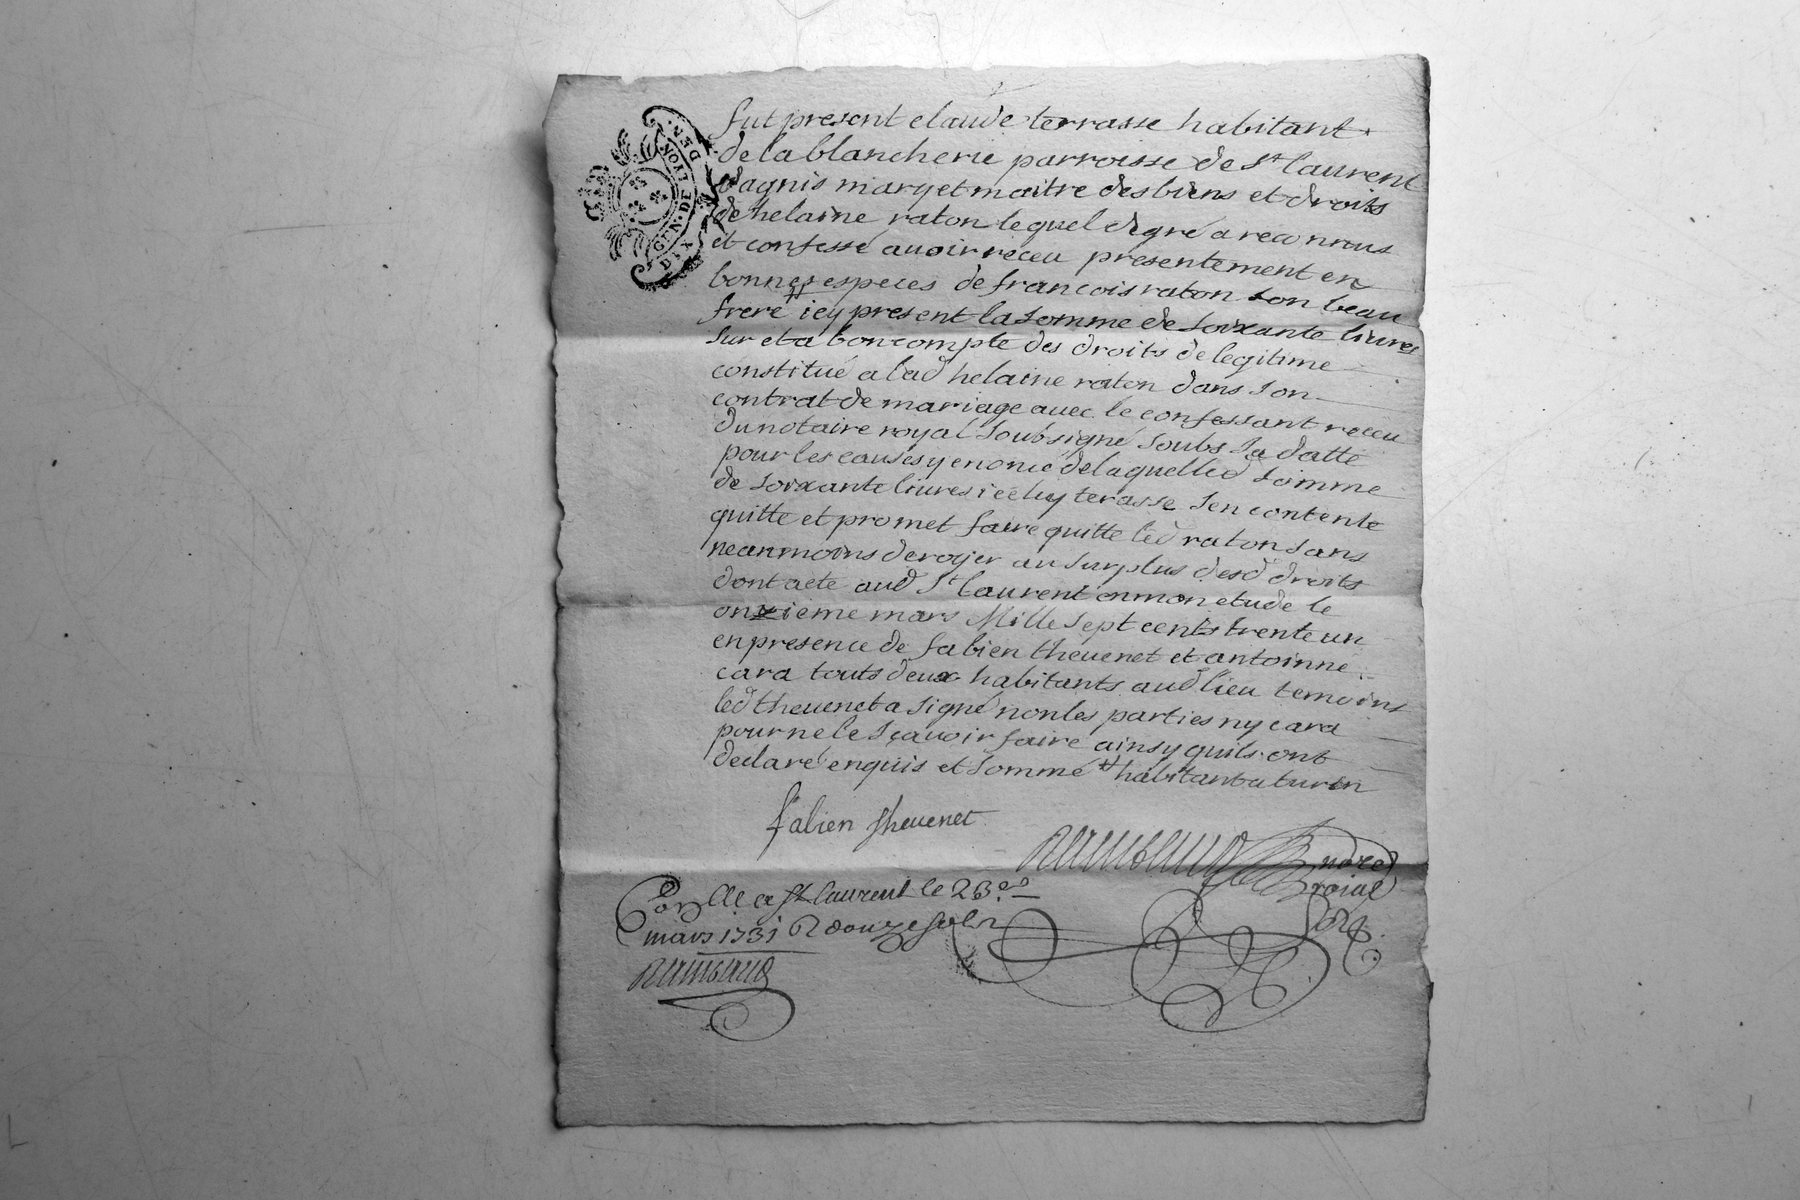 GEN · DE · LYON
DEN.
DIX
fut present claude terrasse habitant
de la blancherie parroisse de St laurent
dagnis mary et maitre des biens et droits
de helaine raton le quel de gré a reconnus
et confessé auoir receu presentement en
bonnes especes de francois raton son beau
frere # icy present la somme de soixante liures
sur et a bon compte des droits de legitime
constitué a lad helaine raton dans son
contrat de mariage auec le confessant receu
du notaire royal soubsigné soubs sa datte
pour les causes y enoncé de laquelled somme
de soixante liures icéluy terasse sen contente
quitte et promet faire quitte led raton sans
neanmoins deroger au surplus desd droits
dont acte aud St laurent en mon etude le
onzieme mars Mille sept cents trente un
en presence de fabien theuenet et antoinne
cara touts deux habitants aud lieu temoins
led theuenet a signé non les parties ny cara
pour ne le sçauoir faire ainsy quils ont
declaré enquis et sommé # habitant a turin
fabien theuenet
Raimbaud nore
roial
Con lle a St laurent le 23e
mars 1731 R douze sols
Raimbaud